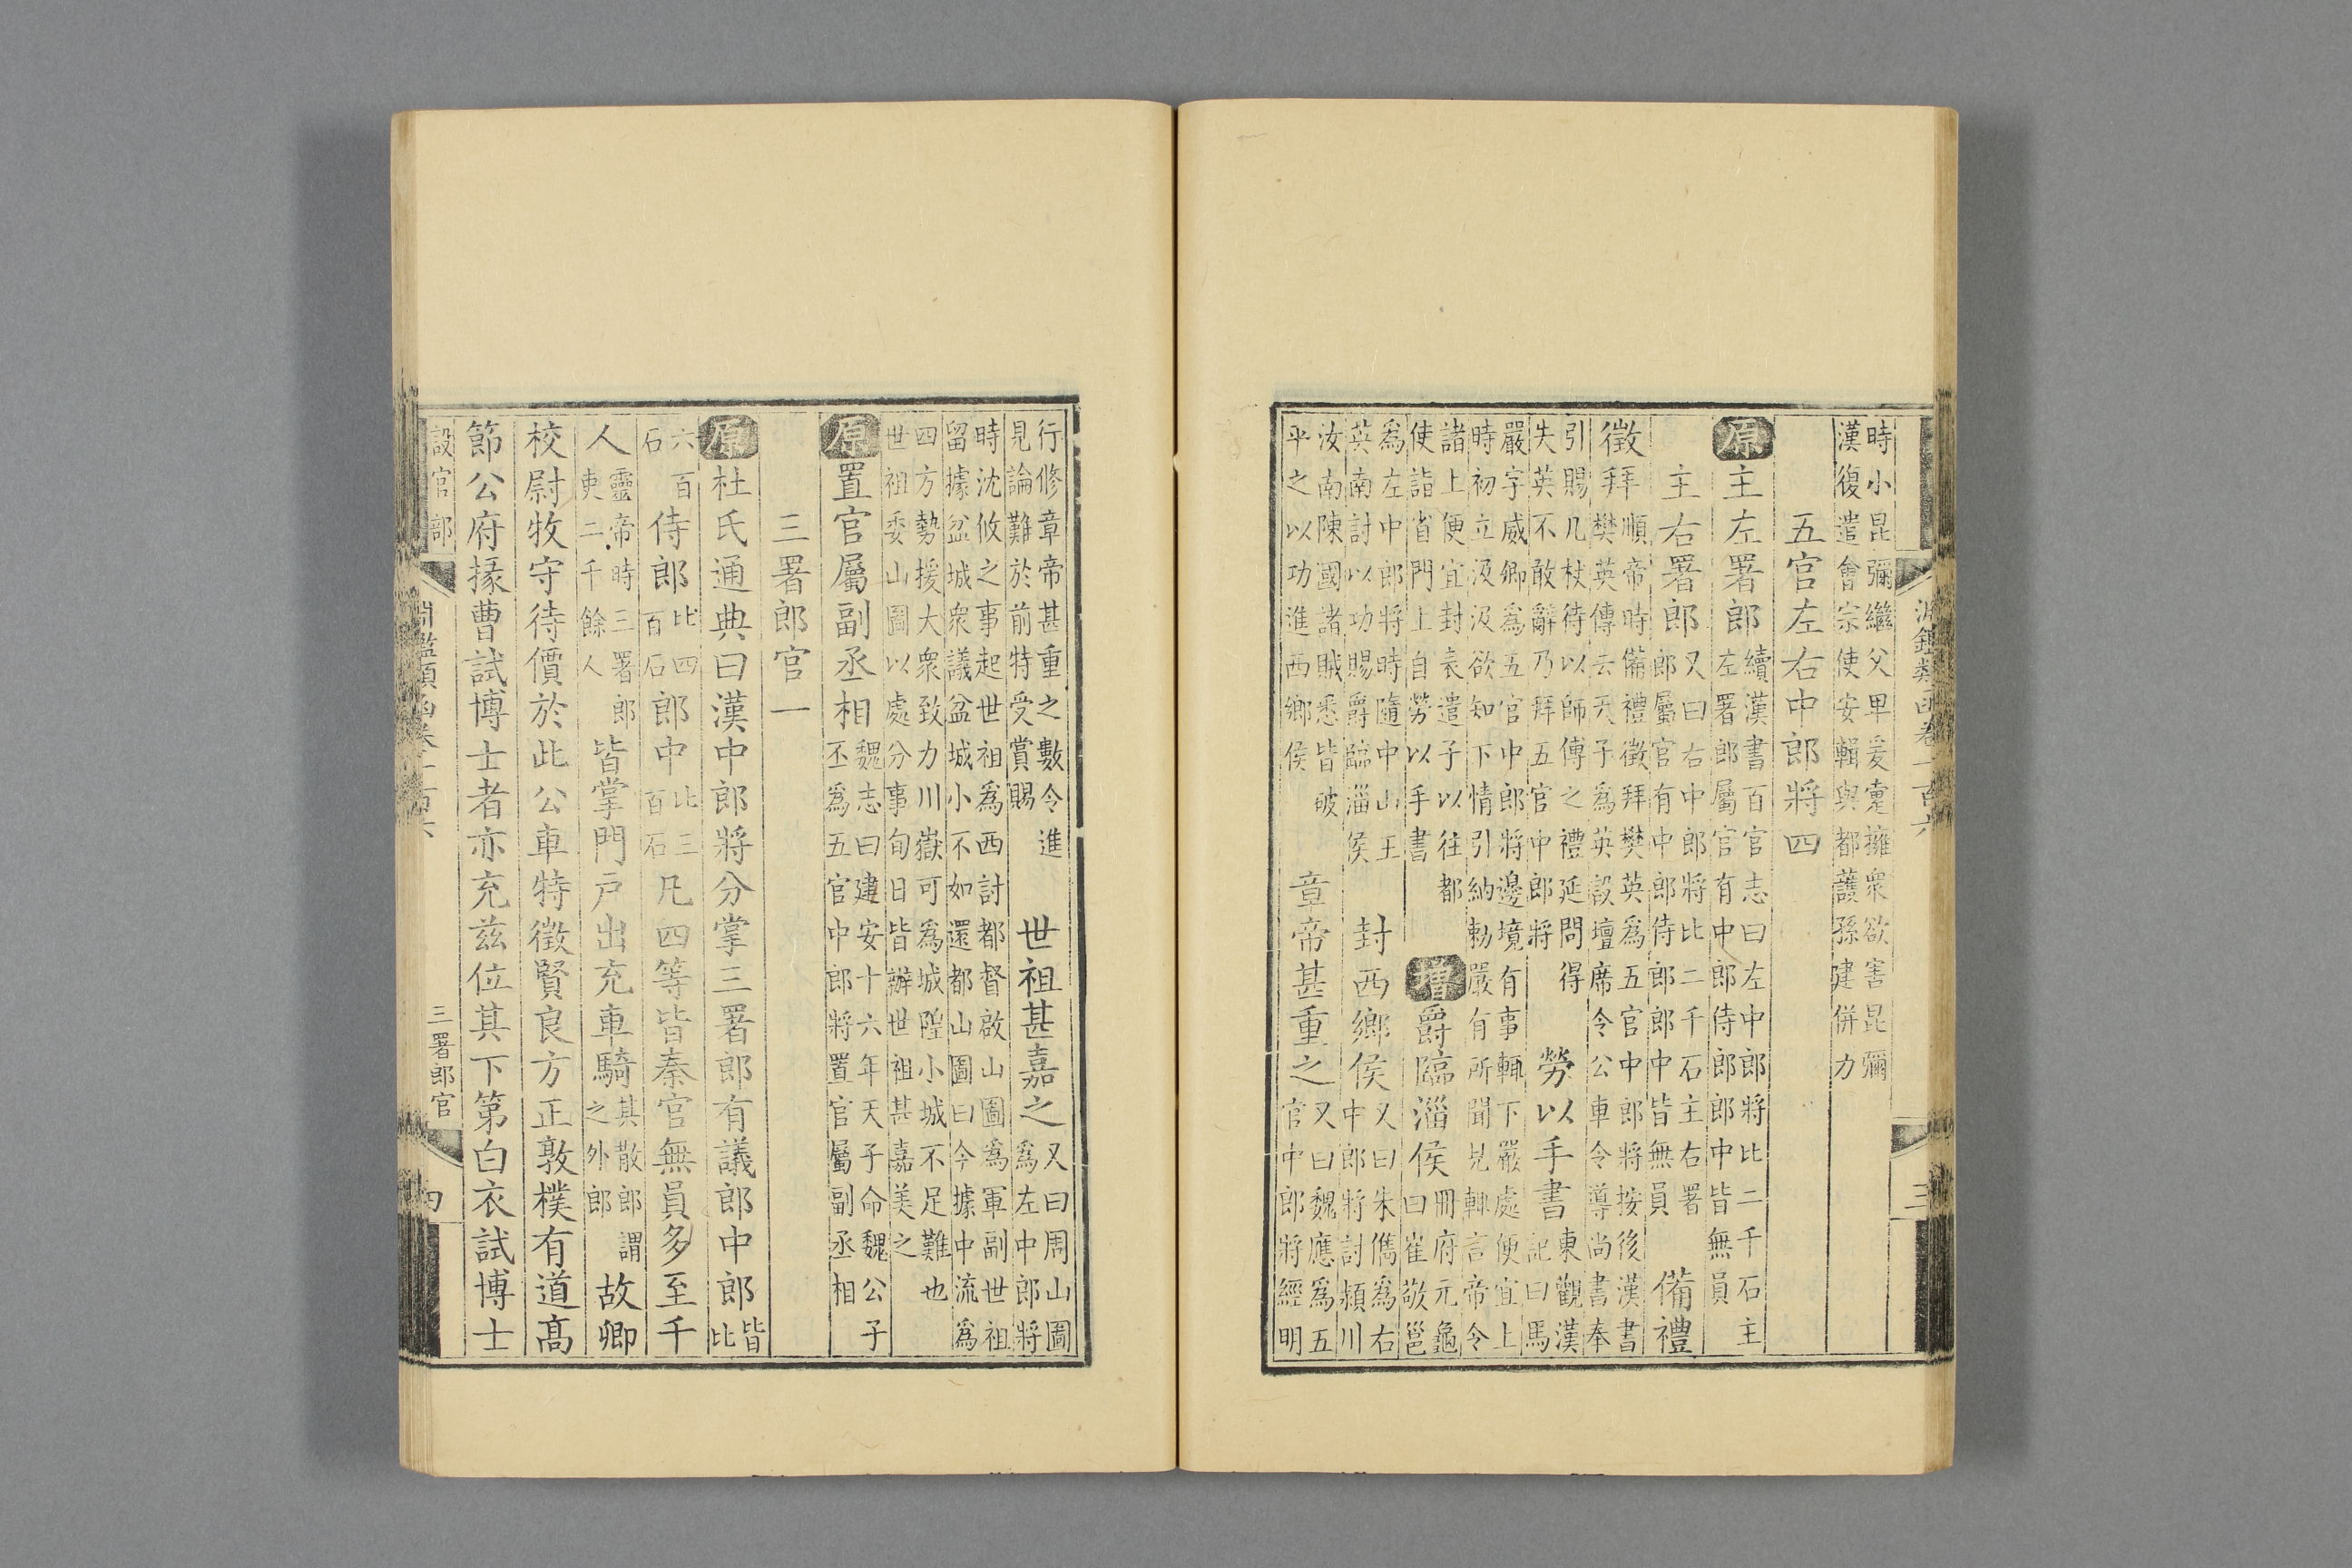 時小昆彌繼父卑爰疐擁衆欲害昆彌
漢復遣會宗使安輯與都護孫建併力
五官左右中郎將四
原主左署郎
續漢書百官志曰左中郎將比二千石主
左署郎屬官有中郎侍郎郎中皆無員
主右署郎
又曰右中郎將比二千石主右署
郎屬官有中郎侍郎郎中皆無員
備禮
徵拜
順帝時備禮徵拜樊英爲五官中郎將按後漢書
樊英傳云天子爲英設壇席令公車令導尚書奉
引賜几杖待以師傅之禮延問得
失英不敢辭乃拜五官中郎將
勞以手書
東觀漢
記曰馬
嚴字威卿爲五官中郎將邊境有事輒下嚴處便宜上
時初立汲汲欲知下情引納勅嚴有所聞見輒言帝令
諸上便宜封表遣子以往都
使詣省門上自勞以手書
增爵臨淄侯
冊府元龜
曰崔敬邕
爲左中郎將時隨中山王
英南討以功賜爵臨淄侯
封西鄉侯
又曰朱儁爲右
中郎將討潁川
汝南陳國諸賊悉皆破
平之以功進西鄉侯
章帝甚重之
又曰魏應爲五
官中郎將經明
淵鑑類函卷一百六
三
行修章帝甚重之數令進
見論難於前特受賞賜
世祖甚嘉之
又曰周山圖
爲左中郎將
時沈攸之事起世祖爲西討都督啟山圖爲軍副世祖
留據盆城衆議盆城小不如還都山圖曰今據中流爲
四方勢援大衆致力川嶽可爲城隍小城不足難也
世祖委山圖以處分事旬日皆辦世祖甚嘉美之
原置官屬副丞相
魏志曰建安十六年天子命魏公子
丕爲五官中郎將置官屬副丞相
三署郎官一
原杜氏通典曰漢中郎將分掌三署郎有議郎中郎
皆
比
六百
石
侍郎
比四
百石
郎中
比三
百石
凡四等皆秦官無員多至千
人
靈帝時三署郎
吏二千餘人
皆掌門戶出充車騎
其散郎謂
之外郎
故卿
校尉牧守待價於此公車特徵賢良方正敦樸有道高
節公府掾曹試博士者亦充茲位其下第白衣試博士
設官部
淵鑑類函卷一百六
三署郎官
四